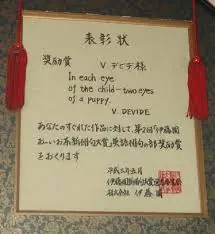 表彰状
奨励賞 V.デビデ様
In each eye
of the child-two eyes
of a puppy.
V. DEVIDE
あなたのすぐれた作品に対して、第2回「伊藤園
おーいお茶新俳句大賞」英語俳句の部奨励賞
をおくります
平成三年五月
伊藤園新俳句大賞
株式会社 伊藤園